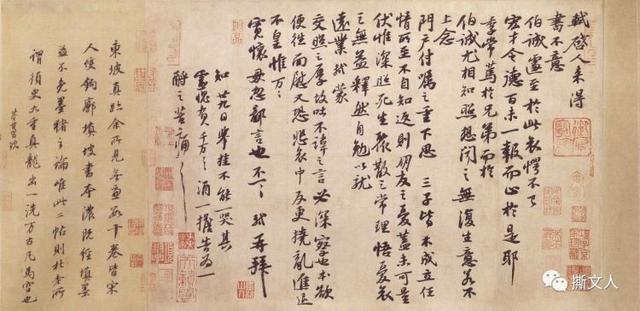 軾啓人來得
書不意
伯誠遽至於此哀愕不已
宏才令德百未一報而止於是耶
季常篤於兄弟而於
伯誠尤相知照想聞之無復生意若不
上念
門户付囑之重下思三子皆不成立任
情所至不自知返則朋友之憂蓋未可量
伏惟深照死生聚散之常理悟憂哀
之無益釋然自勉以就
遠業軾蒙
交照之厚故吐不諱之言必深察也本欲
便往面慰又恐悲哀中反更撓亂進退
不皇惟万万
寬懷毋忽鄙言也不一一軾再拜
知廿九日舉掛不能一哭其
靈愧負千万千万酒一擔告為一
酹之苦痛苦痛
東坡真跡余所見無慮數十卷皆宋
人雙鉤廓填坡書本濃既經填墨
益不免墨豬之論唯此二帖則杜老所
謂須臾九重真龍出一洗万古凡馬空也
董其昌題
撕文人